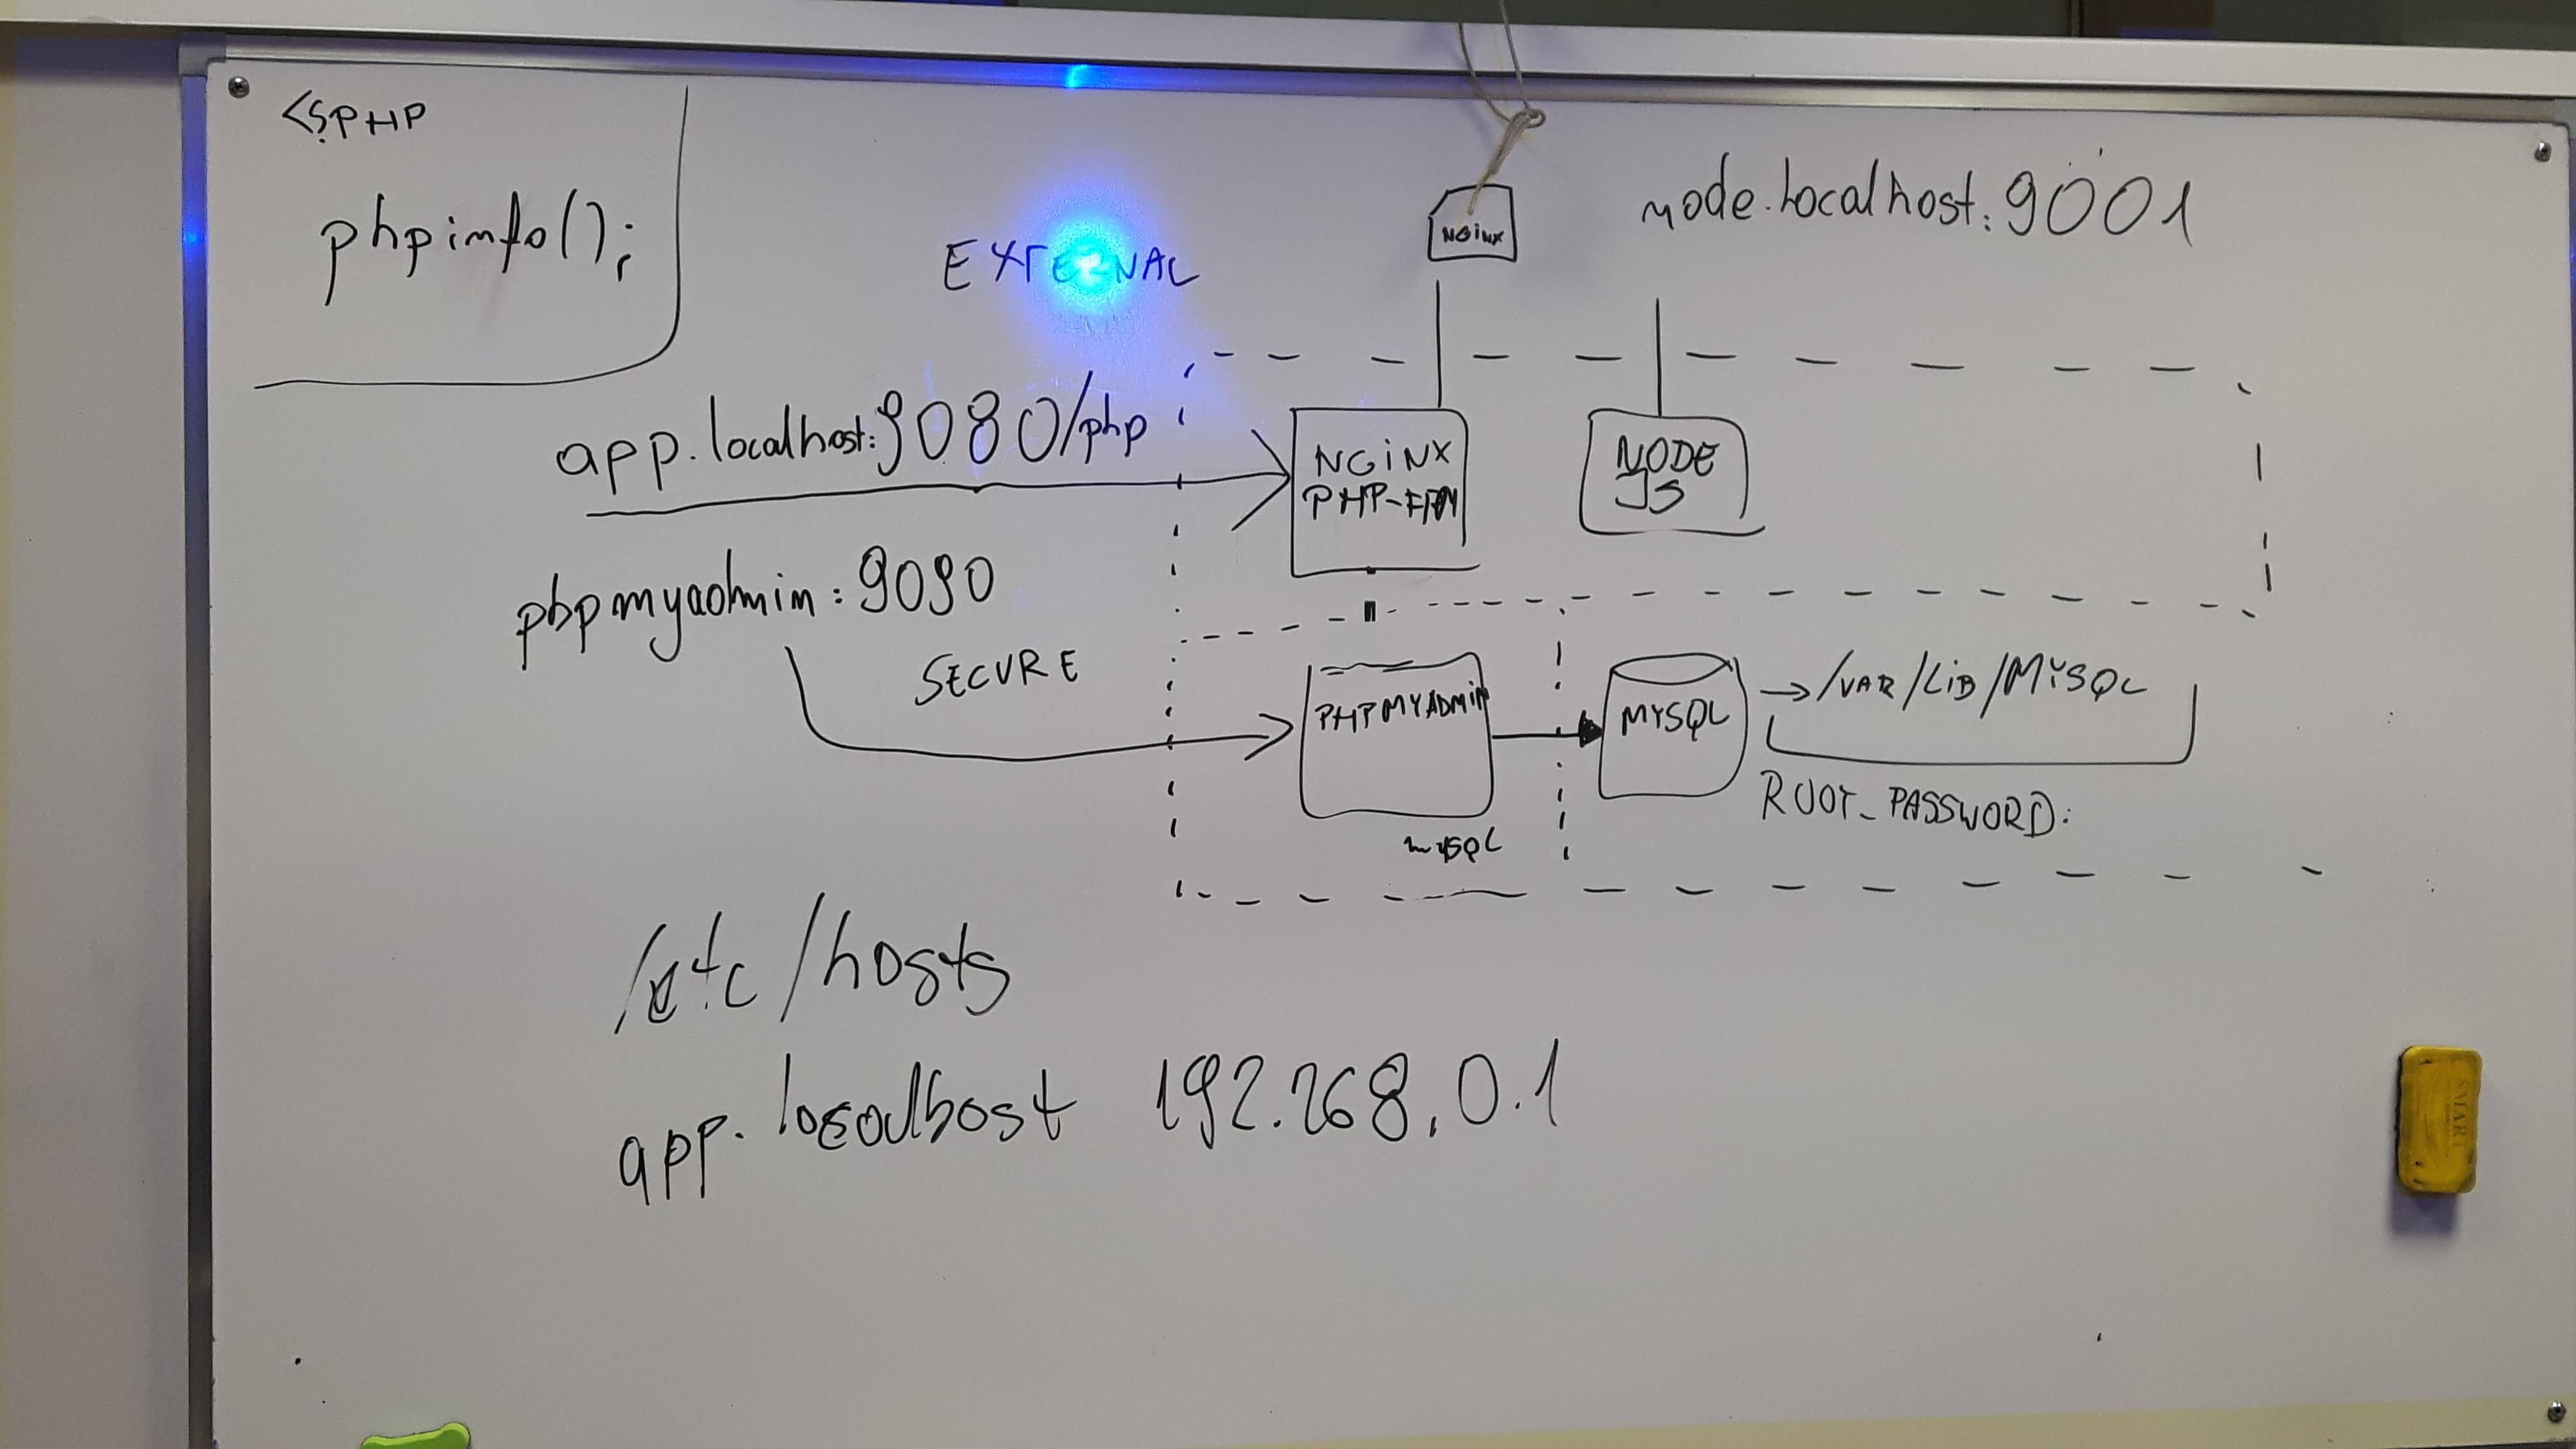 <?PHP
phpinfo();
EXTERNAL
NGiNX
node.localhost:9001
app.localhost:9080/php
NGiNX
PHP-FPM
NODE
JS
phpmyadmin:9090
SECURE
PHPMYADMIN
mysQL
MYSQL
→/VAR/LiB/MYSQL
ROOT_PASSWORD:
/etc/hosts
app.localhost 192.168.0.1
SMART